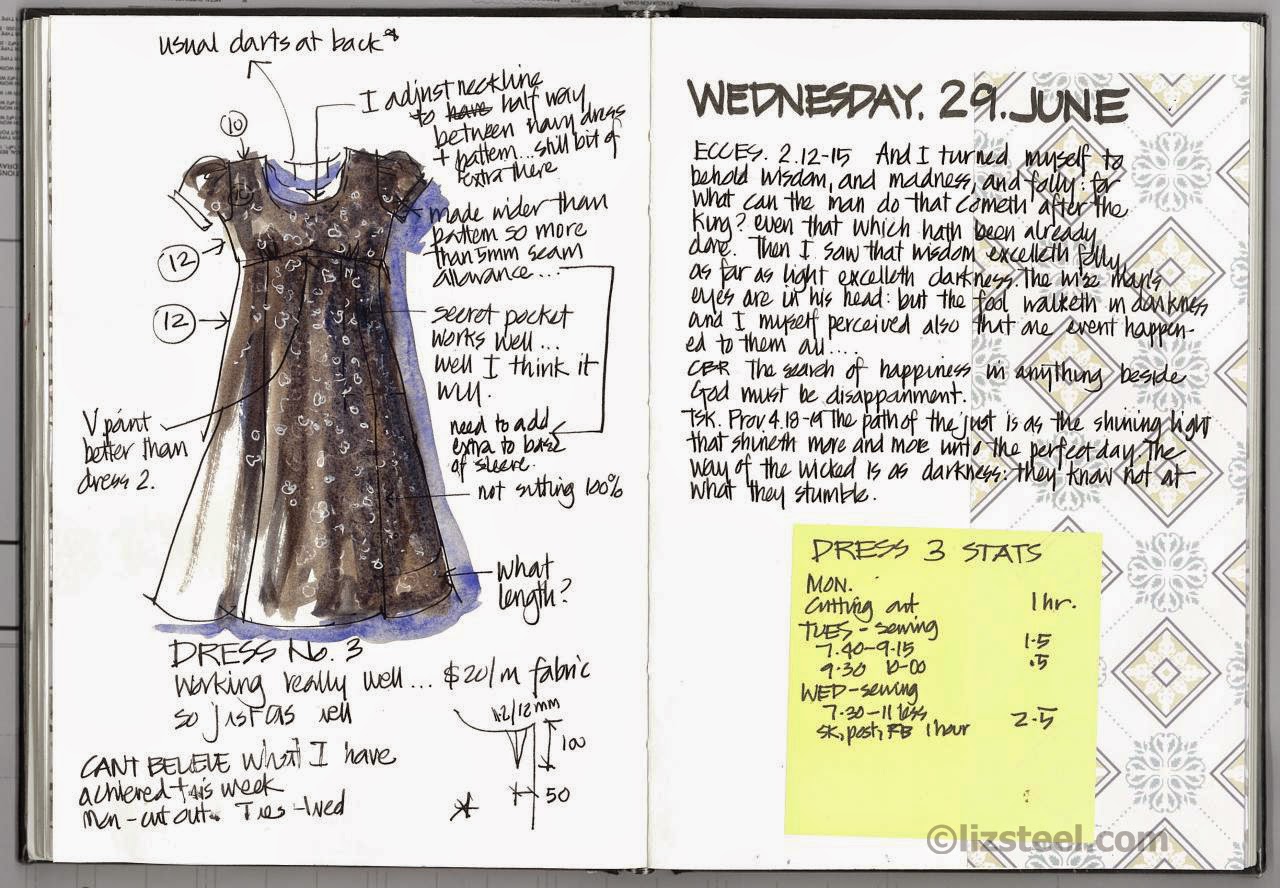 usual darts at back*
I adjust neckline
to have half way
between navy dress
+ pattern... still bit of
extra there
10
10
made wider than
pattern so more
than 5mm seam
allowance...
12
12
secret pocket
works well...
well I think it
will.
V point
better than
dress 2.
need to add
extra to base
of sleeve.
not sitting 100%
what
length?
DRESS No. 3
working really well... $20/m fabric
so just as well
12/12mm
100
50
*
CANT BELIEVE what I have
achieved this week
Mon - cut out. Tues - Wed
WEDNESDAY. 29. JUNE
ECCES. 2.12-15 And I turned myself to
behold wisdom, and madness, and folly: for
what can the man do that cometh after the
King? even that which hath been already
done. Then I saw that wisdom excelleth folly,
as far as light excelleth darkness. The wise man's
eyes are in his head: but the fool walketh in darkness
and I myself perceived also that one event happen-
ed to them all....
CBR The search of happiness in anything beside
God must be disappainment.
TSK. Prov 4.18-19 The path of the just is as the shining light
that shineth more and more unto the perfect day. The
way of the wicked is as darkness: they know not at
what they stumble.
DRESS 3 STATS
MON.
Cutting out 1 hr.
TUES - sewing
7.40-9.15 1.5
9.30 10-00 .5
WED - sewing
7.30-11 less 2.5
sk, post, FB 1 hour
©lizsteel.com